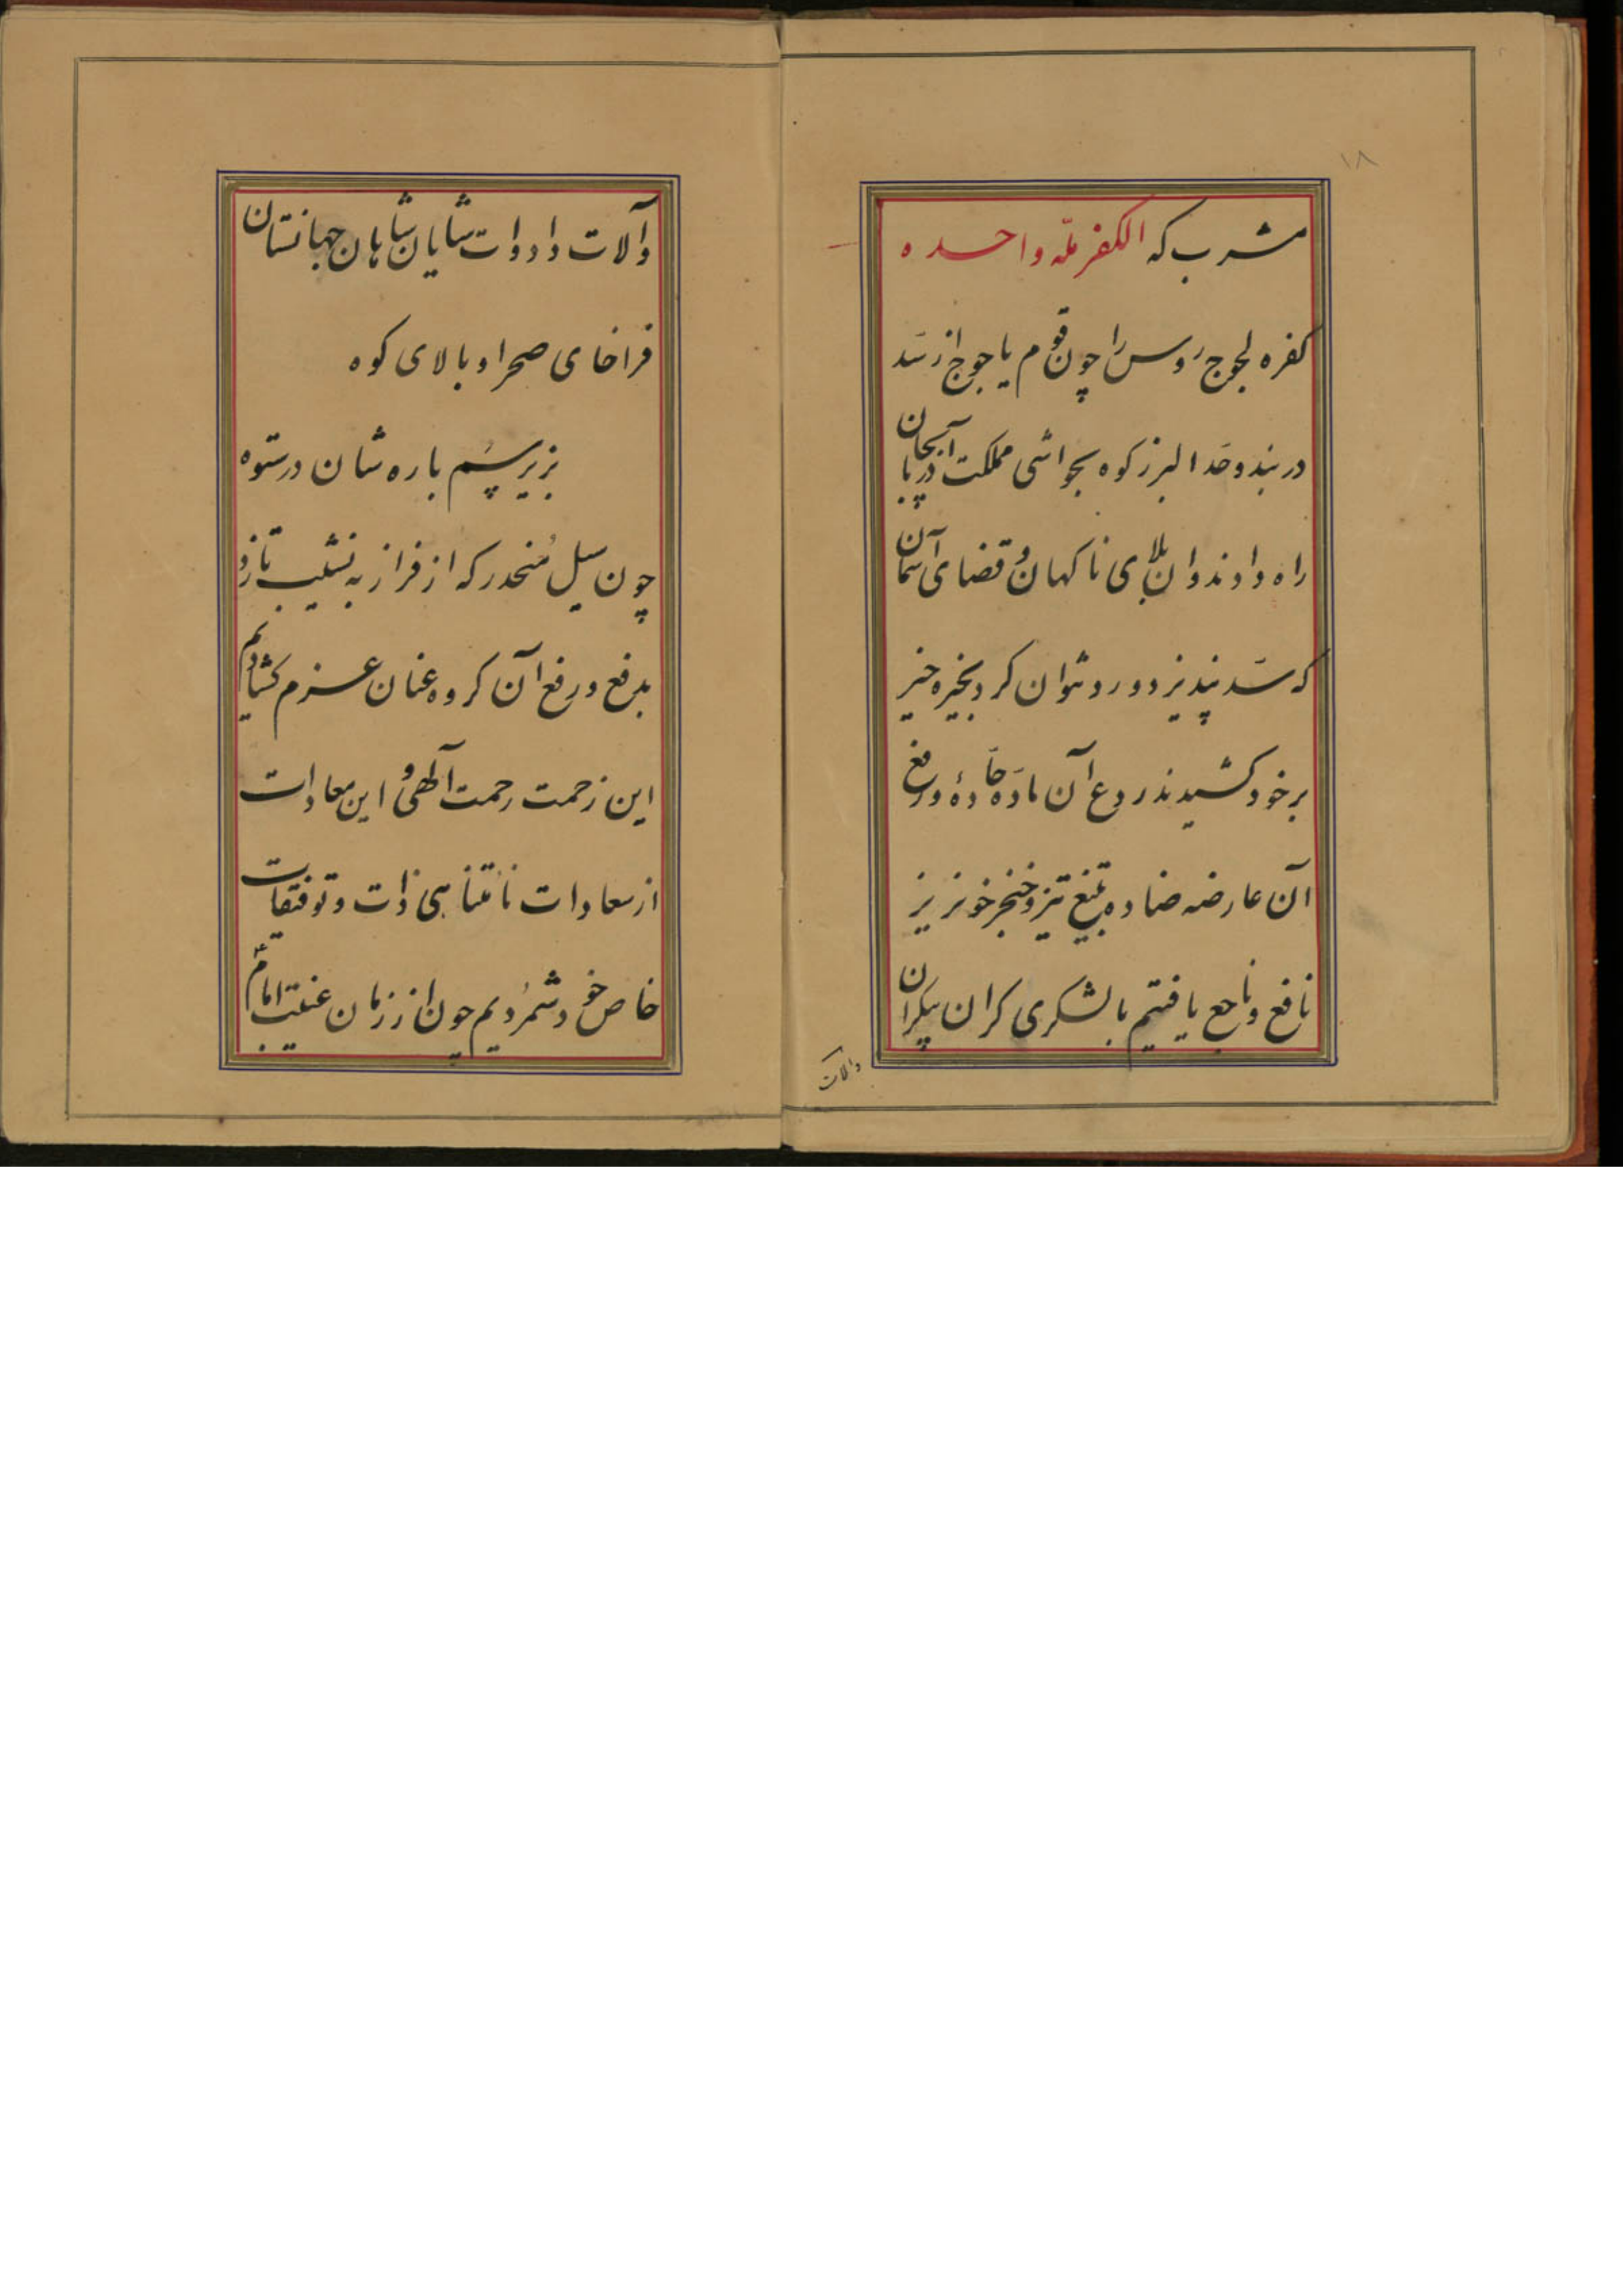 ۱۸
مشرب که الکفر ملّه واحده
کفره لجوج روس را چون قوم یاجوج از سَد
دربند و حَد البرز کوه بحواشی مملکت آذربایجان
راه دادند و ان بلای ناکهان و قضای آسمان
که سَد نپذیرد و رد نتوان کرد بخیره خیر
بر خود کشیدند ردع آن مادّه حادّهٔ و رفع
آن عارضه ضاده بتیغ تیز و خنجر خونریز
نافع و ناجع یافتیم با لشکری کران بیکران
والات
وآلات و ادوات شایان شاهان جهانستان
فراخای صحرا و بالای کوه
بزیر سُم باره شان در ستوه
چون سیل مُنحدر که از فراز به نشیب تازد
بدفع و رفع آن کروه عنان عزم کشادیم
این زحمت رحمت آلهی و این معادات
از سعادات نامتناهی ذات و توفیقات
خاص خود شمُردیم چون از زمان غیبت امامٌ